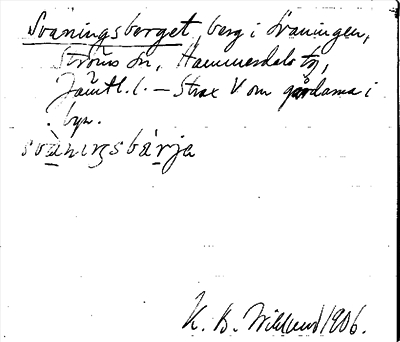 Svaningsberget, berg i Svaningen,
Ströms sn, Hammerdals tg,
Jämtl. l. – Strax V om gårdarna i
byn.
svàniŋsbárja
K. B. Wiklund 1906.